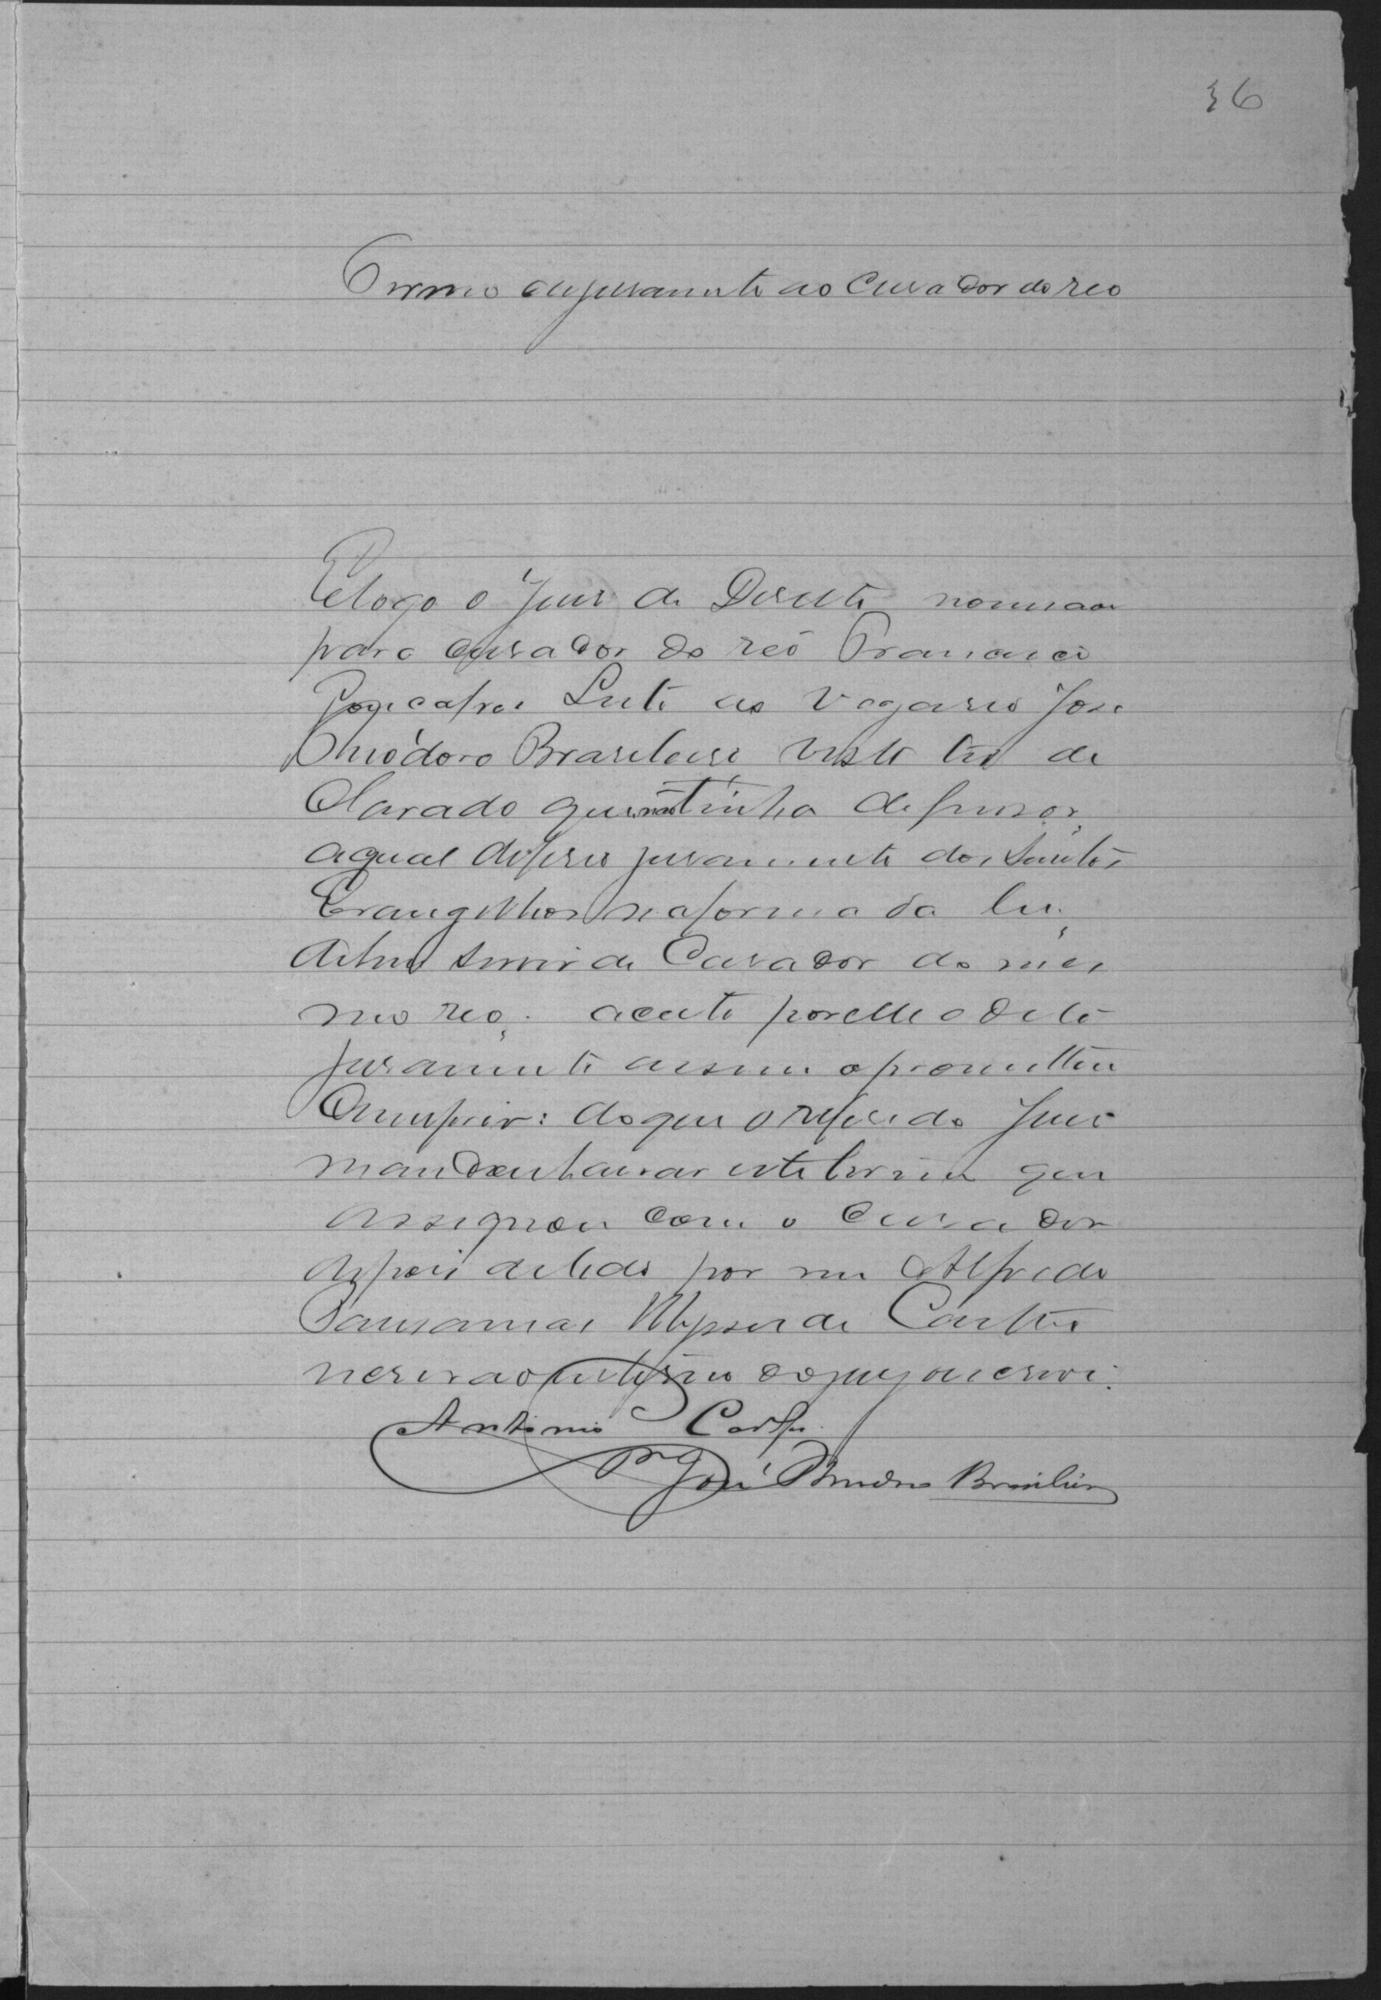 36
Termo de juramento ao Curador do reo
E logo o Juis de Direito nomeou
para curador do reo Francisco
Leite ao Vegario José
Theodoro Brasileiro visto ter de
Clarado que não tinha defensor,
aqual deferio juramento dos Santos
Evangelhos na forma da lei,
de bem servir de Curador do mes
mo reo; aceito por elle o dito
juramento assim o prometteu
Cumprir: do que o referido Juis
mandou lavrar este termo que
assignou com o Curador
depois de lido por mim Alfredo
de Castro
escrivão interino do jury o escrevi.
Antonio
José Theodoro Brasileiro